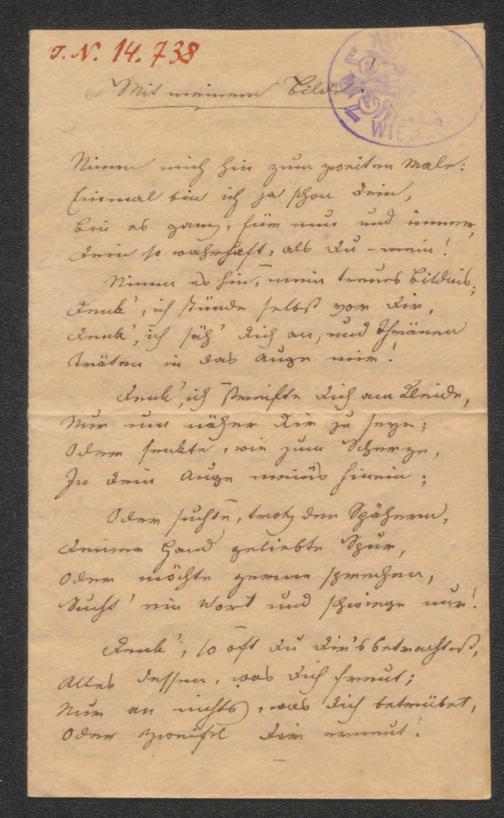 J. N. 14.738
Mit meinem Bilde.
WIEN
Nimm mich hin zum zweiten Male:
Einmal bin ich ja schon dein,
Bin es ganz, für nun und immer,
Dein so wahrhaft, als du – mein!
Nimm es hin, mein treues Bildnis;
Denk', ich stünde selbst vor dir,
Denk', ich säh' dich an, und Thränen
Träten in das Auge mir!
Denk', ich streifte dich am Kleide,
Nur um näher dir zu seyn;
Oder senkte, wie zum Scherze,
In dein Auge meins hinein;
Oder suchte, trotz den Spähern,
Deiner Hand geliebte Spur,
Oder möchte gerne sprechen,
Sucht' ein Wort und schwiege nur!
Denk', so oft du dir's betrachtest,
Alles dessen, was dich freut;
Nur an nichts, was dich betrübet,
Oder Zweifel dir erneut!